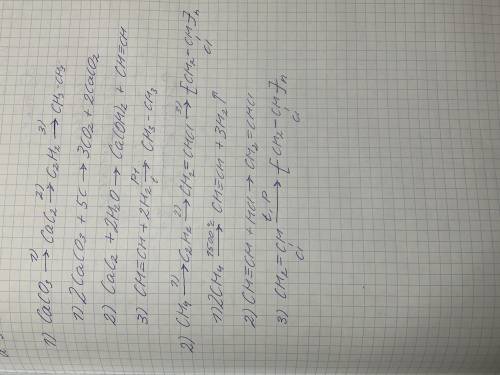 1) CaCO3 1)→ CaC2 2)→ C2H2 3)→ CH3-CH3
1) 2CaCO3 + 5C → 3CO2 + 2CaC2
2) CaC2 + 2H2O → Ca(OH)2 + CH≡CH
3) CH≡CH + 2H2 Pt→ CH3-CH3
2) CH4 1)→ C2H2 2)→ CH2=CHCl 3)→ [CH2-CH]n
Cl
1) 2CH4 1500°C→ CH≡CH + 3H2↑
2) CH≡CH + HCl → CH2=CHCl
3) CH2=CH t, P→ [CH2-CH]n
Cl Cl